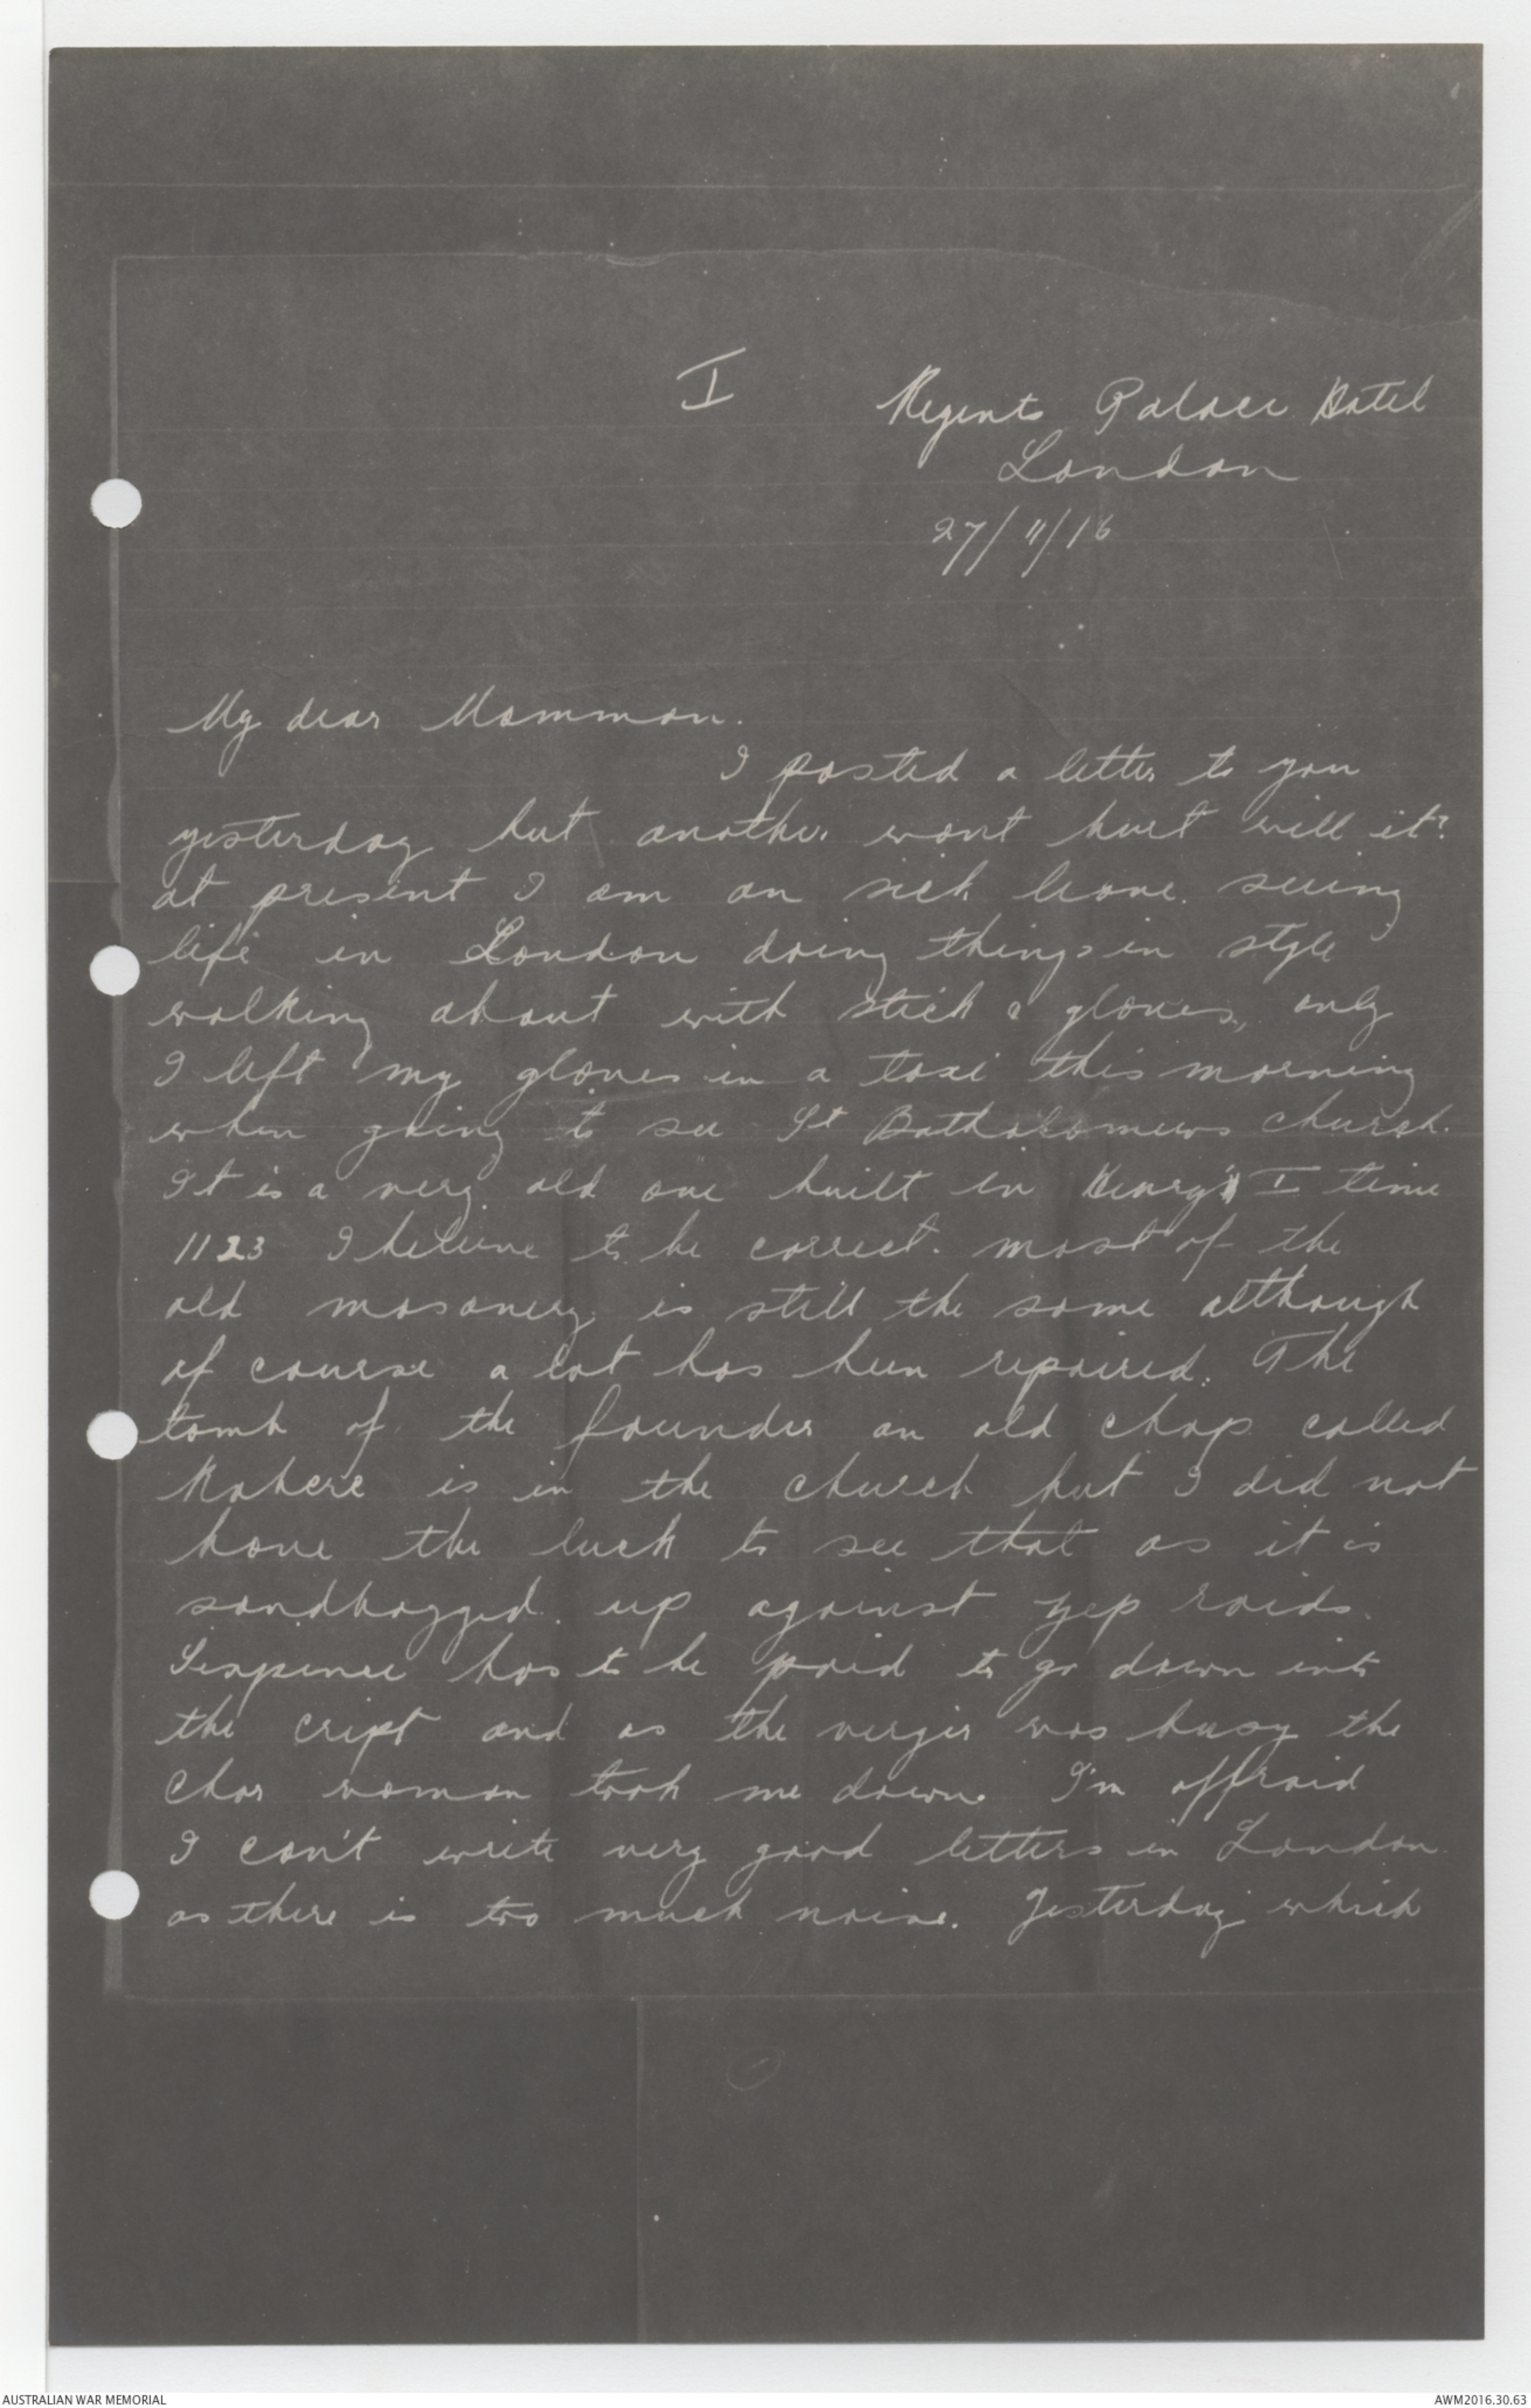 I Regents Palace Hotel
London
27/11/16
My dear Mamman.
I posted a letter to you
yesterday but another wont hurt will it?
at present I am on sick leave seeing
life in London doing things in style
walking about with stick & gloves, only
I left my gloves in a taxi this morning
when going to see St Batholomews church.
It is a very old one built in Henry's I time
1123 I believe to be correct. most of the
old masonery is still the same although
of course a lot has been repaired. The
tomb of the founder an old chap called
Rahere is in the church but I did not
have the luck to see that as it is
sandbagged up against zep raids.
Sixpence has to be paid to go down into
the cript and as the verger was busy the
char woman took me down. I'm affraid
I can't write very good letters in London
as there is too much noise. Yesterday which
AUSTRALIAN WAR MEMORIAL AWM2016.30.63